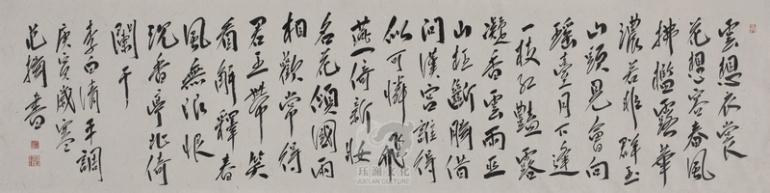 雲想衣裳
花想容春風
拂檻露華
濃若非群玉
山頭見會向
瑤臺月下逢
一枝紅豔露
凝香雲雨巫
山枉斷腸借
問漢宮誰得
似可憐飛
燕倚新妝
名花傾國兩
相歡常得
君王帶笑
看解釋春
風無限恨
沉香亭北倚
闌干
李白清平調
庚寅歲寒
范書
珏澜文化
JUELAN CULTURE